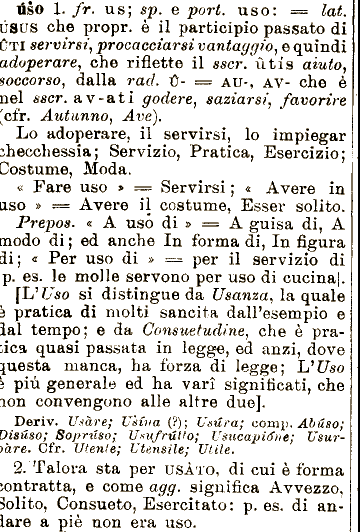 úso 1. fr. us; sp. e port. uso: = lat.
ÚSUS che propr. è il participio passato di
ÛTI servirsi, procacciarsi vantaggio, e quindi
adoperare, che riflette il sscr. ûtis aiuto,
soccorso, dalla rad. Û- = AU-, AV- che è
nel sscr. av-ati godere, saziarsi, favorire
(cfr. Autunno, Ave).
Lo adoperare, il servirsi, lo impiegar
checchessia; Servizio, Pratica, Esercizio;
Costume, Moda.
« Fare uso » = Servirsi; « Avere in
uso » = Avere il costume, Esser solito.
Prepos. « A uso di » = A guisa di, A
modo di; ed anche In forma di, In figura
di; « Per uso di » = per il servizio di
p. es. le molle servono per uso di cucina|.
[L'Uso si distingue da Usanza, la quale
è pratica di molti sancita dall'esempio e
dal tempo; e da Consuetudine, che è pra-
tica quasi passata in legge, ed anzi, dove
questa manca, ha forza di legge; L'Uso
è più generale ed ha varî significati, che
non convengono alle altre due].
Deriv. Usàre; Usína (?); Usúra; comp. Abúso;
Disúso; Soprúso; Usufrútto; Usucapióne; Usur-
pàre. Cfr. Utente; Utensile; Utile.
2. Talora sta per USÀTO, di cui è forma
contratta, e come agg. significa Avvezzo,
Solito, Consueto, Esercitato: p. es. di an-
dare a piè non era uso.